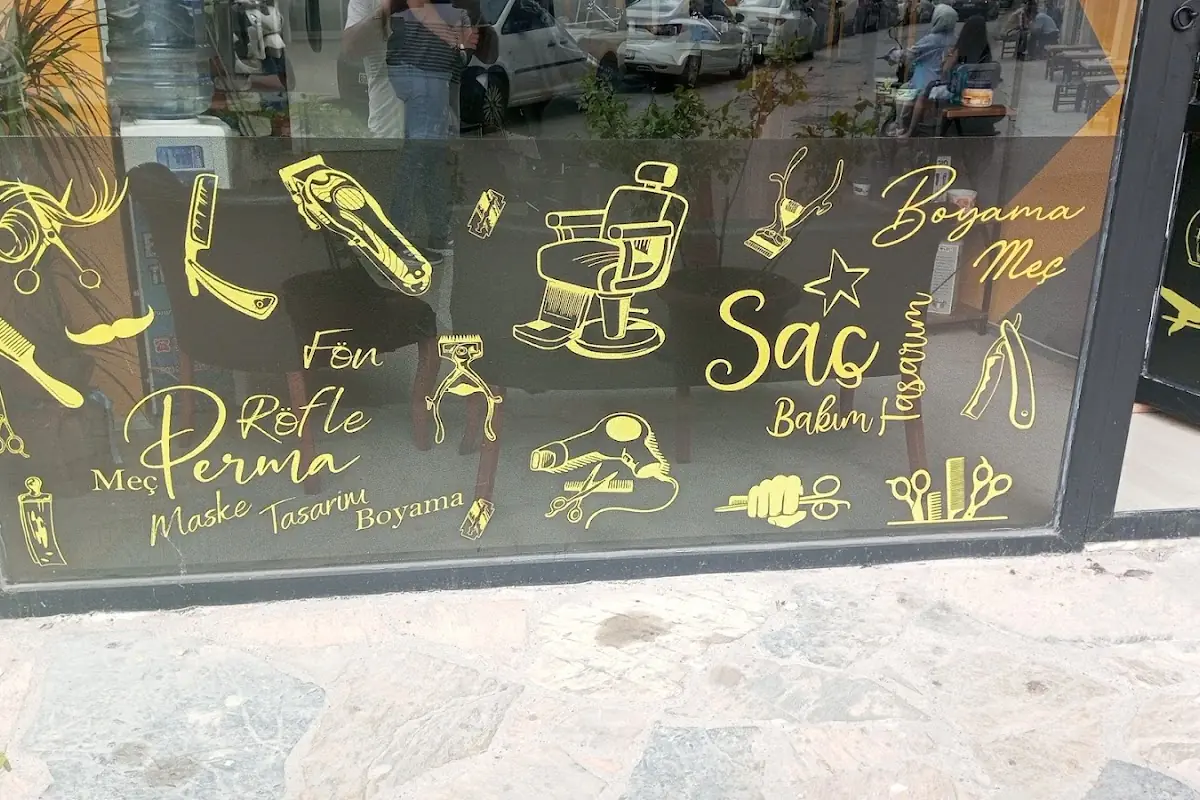 Fön
Röfle
Perma
Meç
Maske Tasarım Boyama
Boyama
Meç
Saç
Bakım
Tasarım